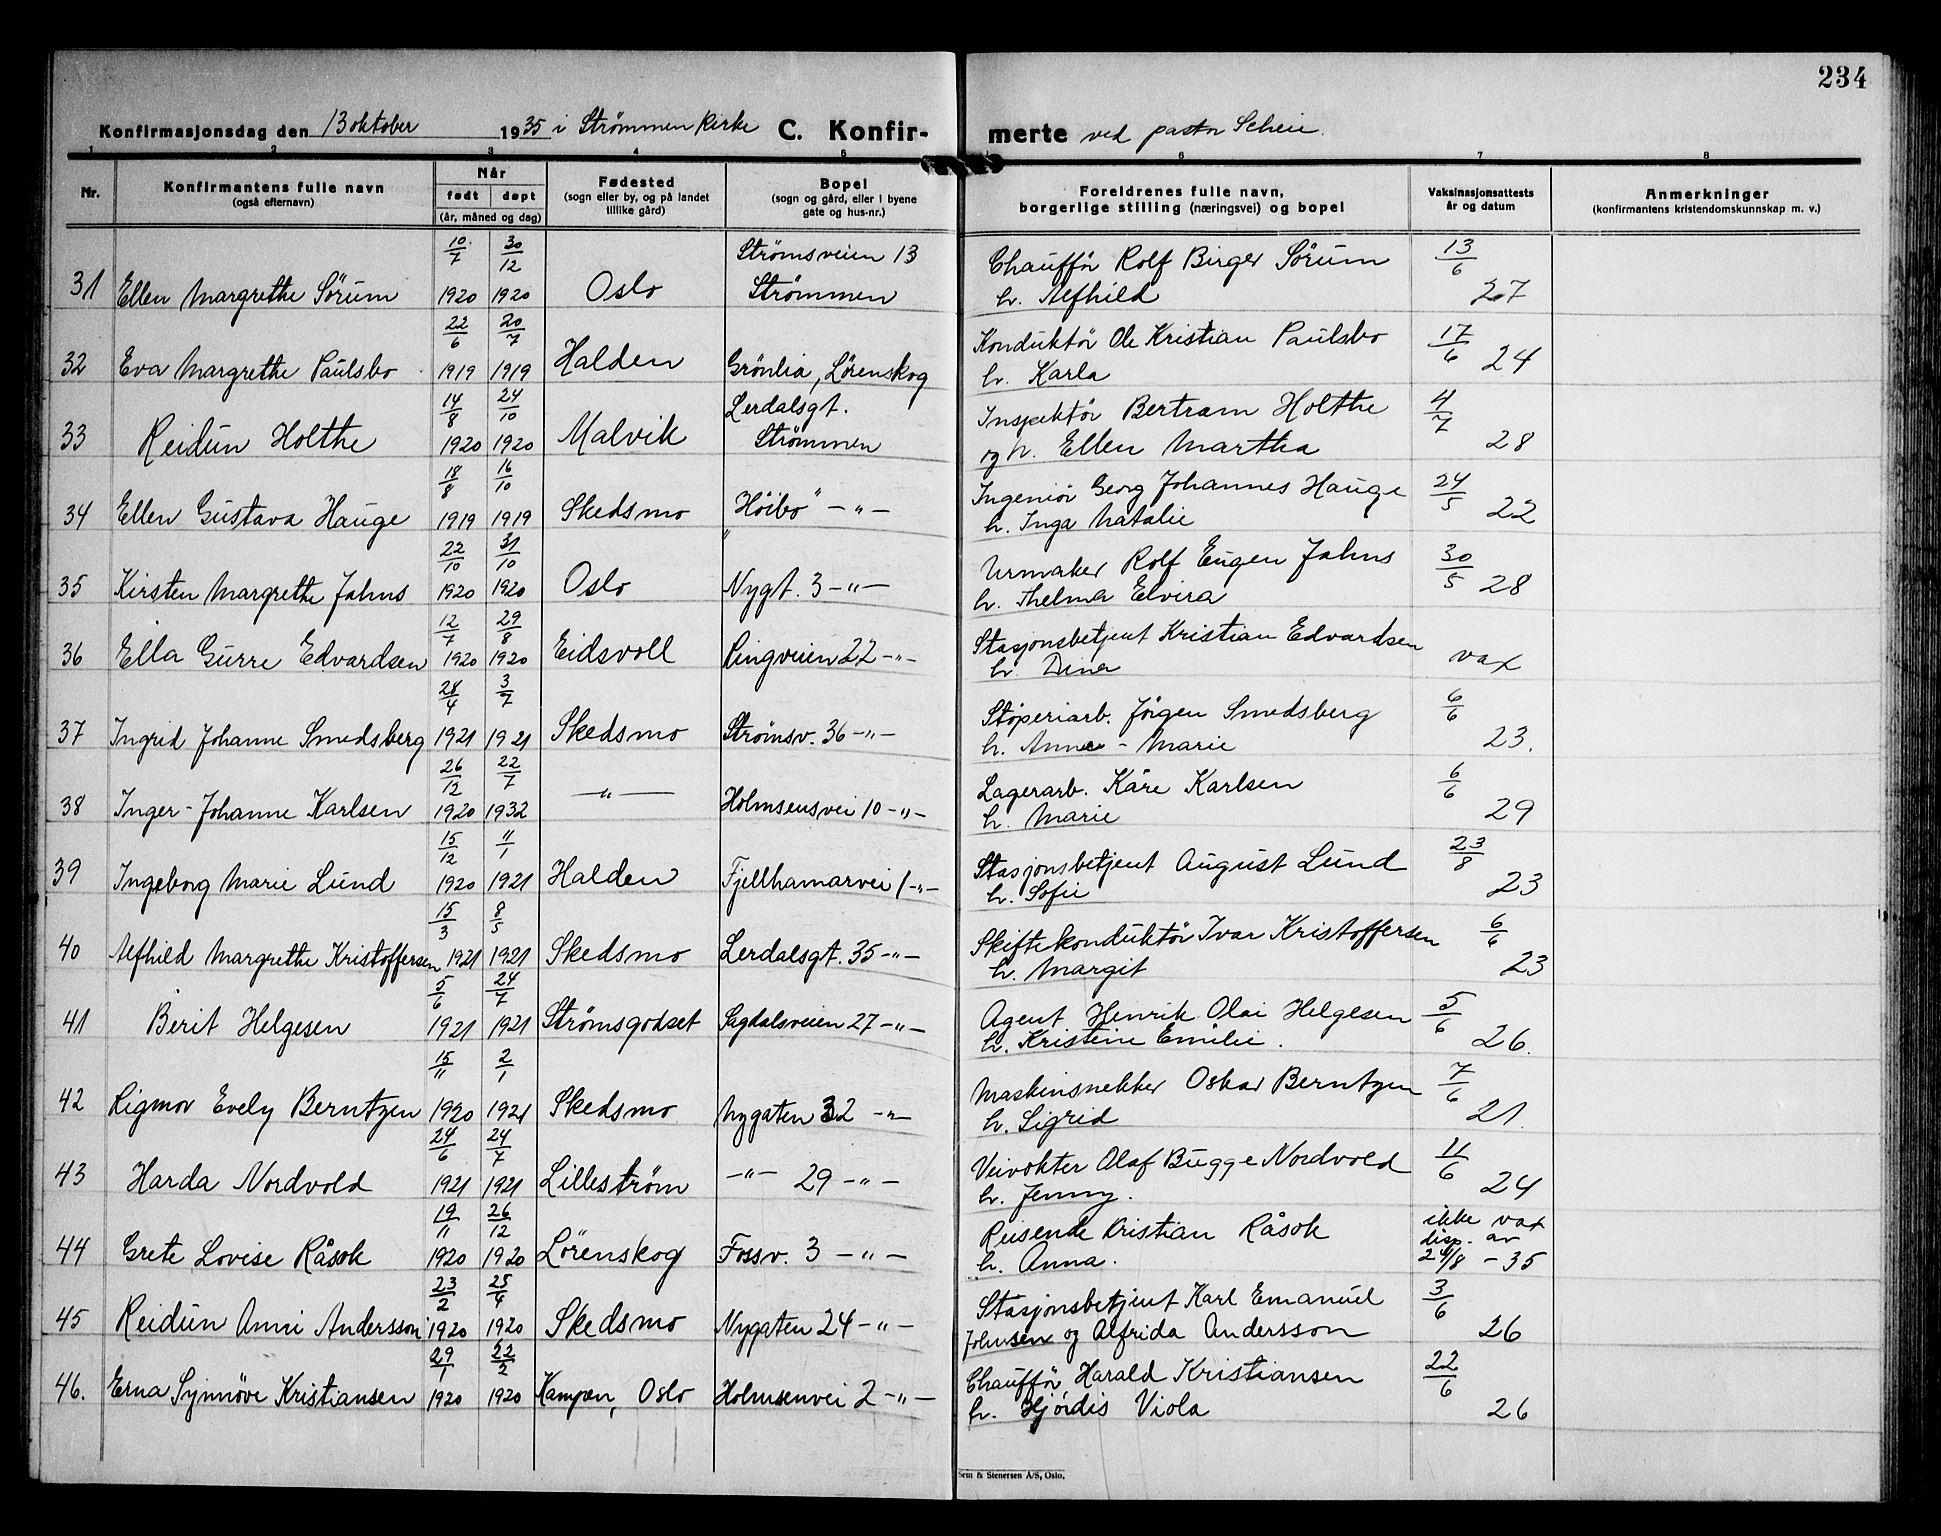 234
Konfirmasjonsdag den 13 oktober 1935 i Strømmen kirke C. Konfir-
merte ved pastor Scheie.
1 2 3 4 5 6 7 8
Nr. Konfirmantens fulle navn (også efternavn) Når født døpt (år, måned og dag) Fødested (sogn eller by, og på landet tillike gård) Bopel (sogn og gård, eller i byene gate og hus-nr.) Foreldrenes fulle navn, borgerlige stilling (næringsvei) og bopel Vaksinasjonsattests år og datum Anmerkninger (konfirmantens kristendomskunnskap m. v.)
10/7 30/12 Strømsveien 13 Chauffør Rolf Birger Sørum 13/6
31 Ellen Margrethe Sørum 1920 1920 Oslo Strømmen h. Alfhild 27
22/6 20/7 Konduktør Ole Kristian Paulsbo 17/6
32 Eva Margrethe Paulsbo 1919 1919 Halden Grønlia, Lørenskog h. Karla 24
14/8 24/10 Lerdalsgt. Inspektør Bertram Holthe 4/7
33 Reidun Holthe 1920 1920 Malvik Strømmen og h. Ellen Martha 28
18/8 16/10 Ingeniør Georg Johannes Hauge 24/5
34 Ellen Gustava Hauge 1919 1919 Skedsmo "Høibo" -"- h. Inga Natalie 22
22/10 31/10 Urmaker Rolf Eugen Jahns 30/5
35 Kirsten Margrethe Jahns 1920 1920 Oslo Nygt. 3 -"- h. Thelma Elvira 28
12/7 29/8 Stasjonsbetjent Kristian Edvardsen
36 Ella Gurre Edvardsen 1920 1920 Eidsvoll Ringveien 22 -"- h. Dina vax
28/4 3/7 Støperiarb. Jørgen Smedsberg 6/6
37 Ingrid Johanne Smedsberg 1921 1921 Skedsmo Strømsv. 36 -"- h. Anna - Marie 23.
26/12 22/7 Lagerarb. Kåre Karlsen 6/6
38 Inger-Johanne Karlsen 1920 1932 -"- Holmsensvei 10 -"- h. Marie 29
15/12 11/1 Stasjonsbetjent August Lund 23/8
39 Ingeborg Marie Lund 1920 1921 Halden Fjellhamarvei 1 -"- h. Sofie 23
15/3 8/5 Skiftekonduktør Ivar Kristoffersen 6/6
40 Alfhild Margrethe Kristoffersen 1921 1921 Skedsmo Lerdalsgt. 35 -"- h. Margit 23
5/6 24/7 Agent Henrik Olai Helgesen 5/6
41 Berit Helgesen 1921 1921 Strømsgodset Sagdalsveien 27 -"- h. Kristine Emilie. 26.
15/11 2/1 Maskinsnekker Oskar Berntzen 7/6
42 Rigmor Evely Berntzen 1920 1921 Skedsmo Nygaten 32 -"- h. Sigrid 21.
24/6 24/7 Veivokter Olaf Bugge Nordvold 11/6
43 Harda Nordvold 1921 1921 Lillestrøm -"- 29 -"- h. Jenny. 24
19/11 26/12 Reisende Kristian Råsok ikke vax disp. av
44 Grete Lovise Råsok 1920 1920 Lørenskog Fossv. 3 -"- h. Anna. 24/8 - 35
23/2 25/4 Stasjonsbetjent Karl Emanuel 3/6
45 Reidun Anni Andersson 1920 1920 Skedsmo Nygaten 24 -"- Johnsen og Alfrida Andersson 26
29/1 22/2 Chauffør Harald Kristiansen 22/6
46. Erna Synnøve Kristiansen 1920 1920 Kampen, Oslo Holmsenvei 2 -"- h. Hjørdis Viola 26
Sem & Stenersen A/S, Oslo.